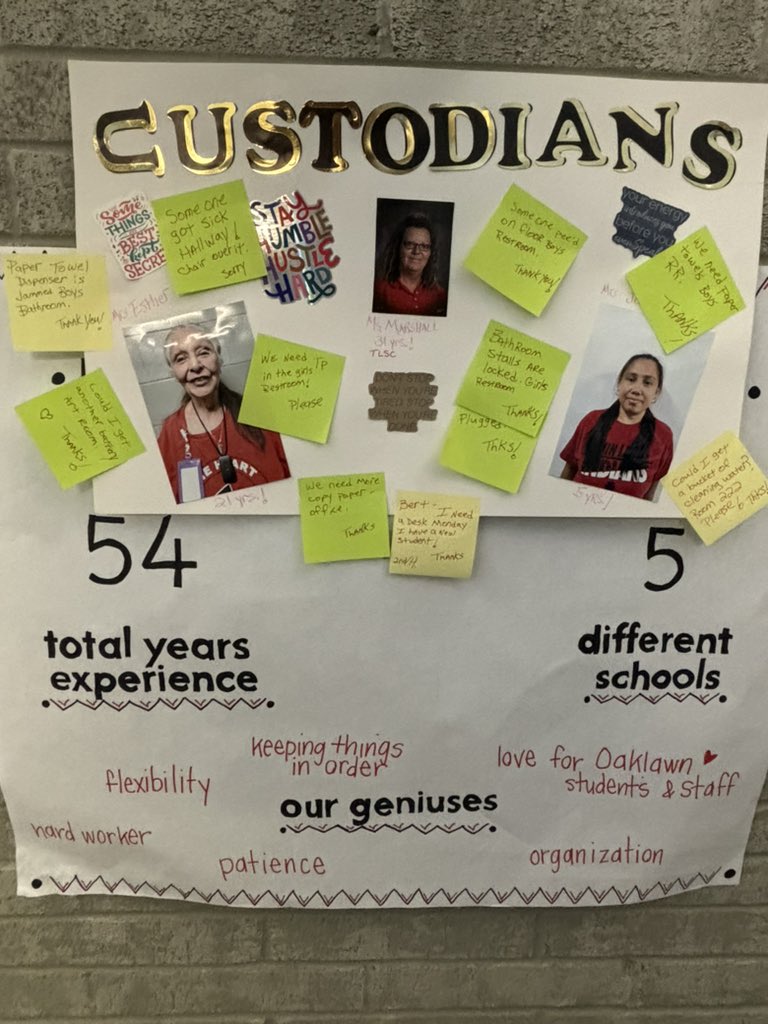 CUSTODIANS
Some
THINGS
BEST
kept
SECRE
Someone
got sick
Hallway!
chair over it.
sorry
STAY
HUMBLE
HUSTLE
HARD
Someone pee'd
on floor Boys
Restroom.
THANK YOU!
Your energy
introduces you
before you
We need Paper
towels Boys
R.R.
Thanks!
Paper Towel
Dispenser is
Jammed Boys
Bathroom.
THANK YOU!
Mrs. Esther
Ms. MARSHALL
31 yrs.!
TLSC
We Need TP
in the girls
Restroom!
Please
BathRoom
Stalls Are
locked. Girls
Restroom
THANKS!
Plugged
THKS!
DON'T STOP
WHEN YOU'RE
TIRED STOP
WHEN YOU'RE
DONE
Could I get
another battery
Art Room.
Thanks!
Could I get
a bucket of
cleaning water?
Room 222
Please & Thks!
21 yrs.!
5 yrs.!
We need More
copy Paper -
office.
THANKS
Bert - I need
a Desk Monday
I have a New
Student!
Thanks
54
5
total years
experience
different
schools
keeping things
in order
love for Oaklawn ♥
students & staff
flexibility
our geniuses
hard worker
patience
organization